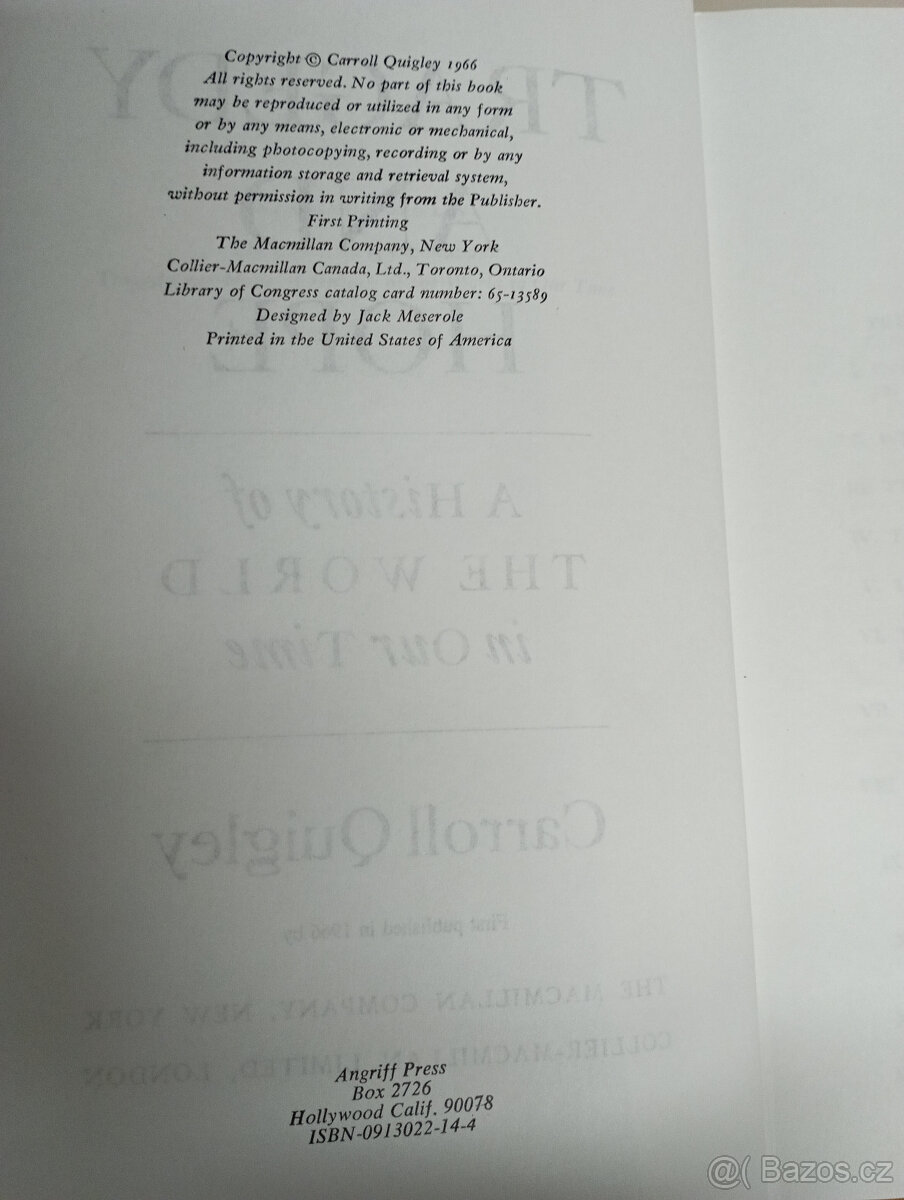 Copyright © Carroll Quigley 1966
All rights reserved. No part of this book
may be reproduced or utilized in any form
or by any means, electronic or mechanical,
including photocopying, recording or by any
information storage and retrieval system,
without permission in writing from the Publisher.
First Printing
The Macmillan Company, New York
Collier-Macmillan Canada, Ltd., Toronto, Ontario
Library of Congress catalog card number: 65-13589
Designed by Jack Meserole
Printed in the United States of America
A History of
THE WORLD
in Our Time
Carroll Quigley
First published in 1966 by
THE MACMILLAN COMPANY, NEW YORK
COLLIER-MACMILLAN LIMITED, LONDON
Angriff Press
Box 2726
Hollywood Calif. 90078
ISBN-0913022-14-4
@( Bazos.cz